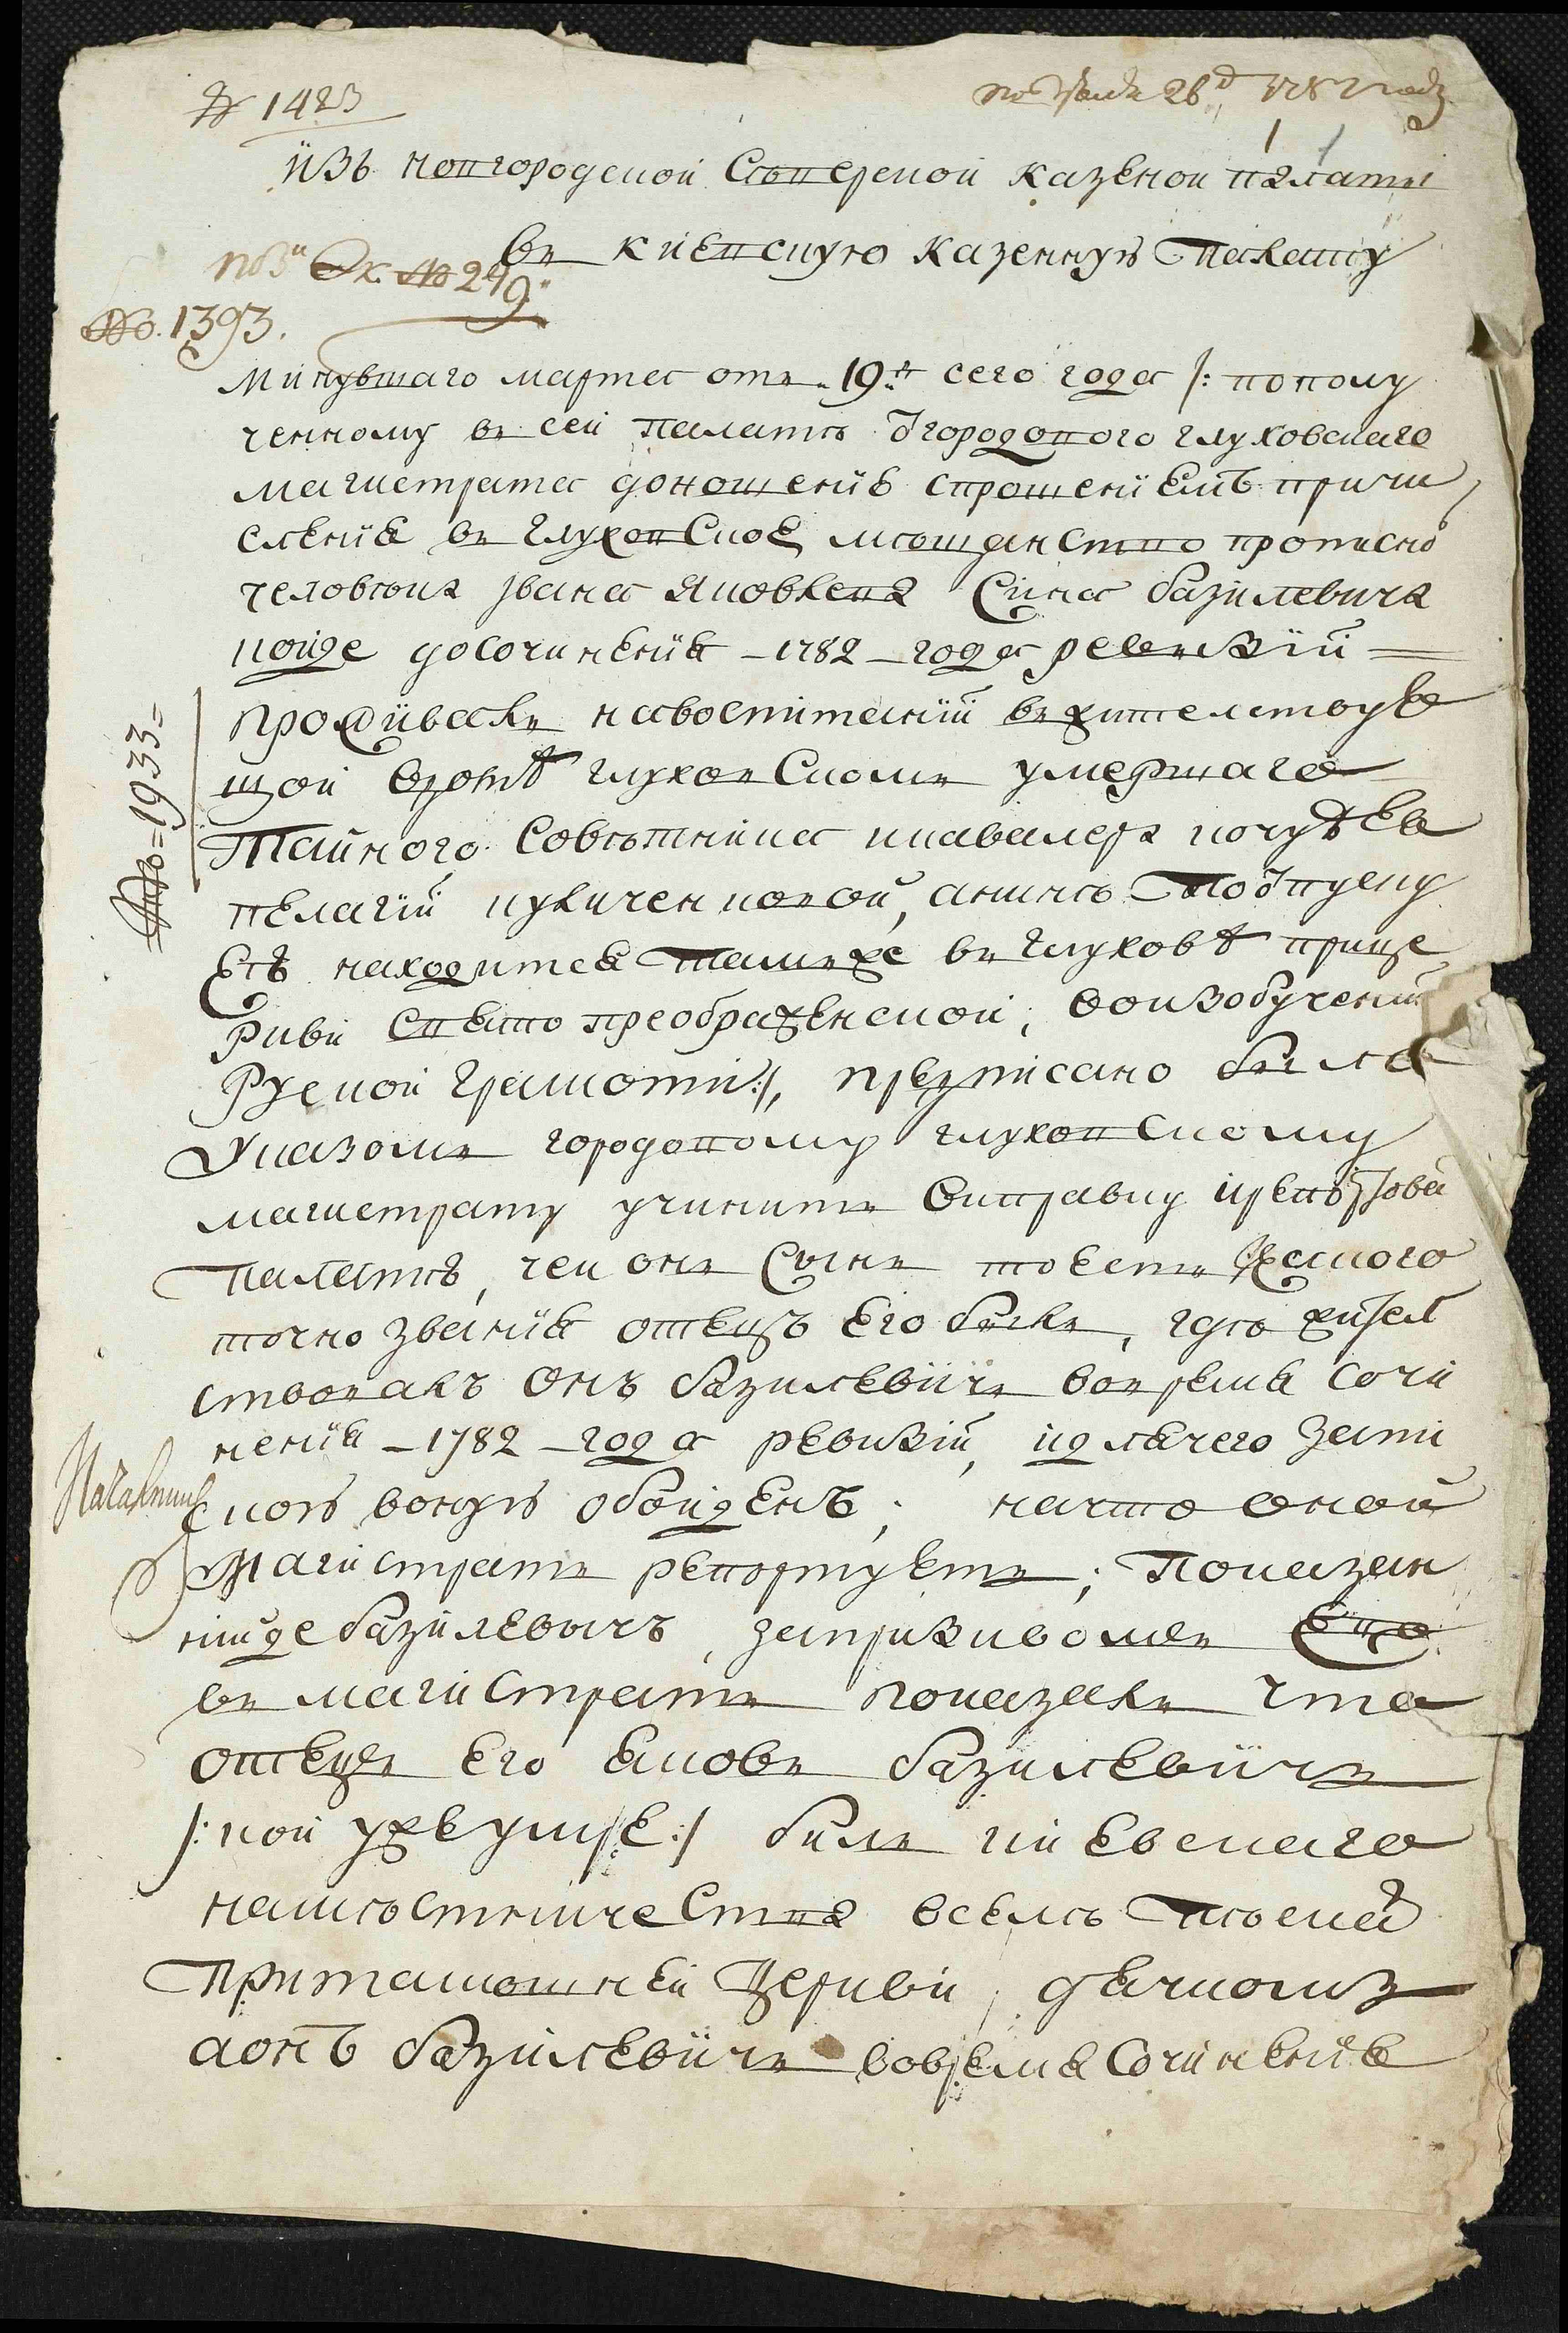 № 1423
26 д 1787 году
1
Изъ новгородской Северской казеной палаты
въ киевскую казенную Палату
№ 249.
No. 1393.
Минувшаго марта отъ 19г сего года /: по полу
ченному въ сей палатѣ Ѿ городового глуховскаго
магистрата доношенію с прошениемъ причи
сленія въ глуховское мѣщанство прописно
человѣка Ивана Яковлева Сина базилевича
кой де до сочиненія 1782 года ревизіи
проживалъ на воспитаніи въ жителствую
щой в городѣ глуховскомъ умершаго
Тайного совѣтника и кавалера кочубея
пелагіи куличенковой, а нинѣ по Ѿпуску
Ея находится тамъ же въ глуховѣ при це
ркви Свято преображенской, во изобученіи
Руской грамоти :/, предписано было
Указомъ городовому глуховскому
магистрату учинить Справку и репортова
палатѣ, чей онъ Сынъ то есть какого
точно званія отецъ Его былъ, где жител
ствовалъ онъ базилевичъ во время сочи
ненія 1782 года ревизіи, и для чего
в оную обойденъ; на что оной
магистратъ репортуетъ; Показан
ній де базилевычъ, за призивомъ Его
въ магистратъ показалъ что
отецъ Его Яковъ базилевичъ
/: кой уже умре :/ билъ киевскаго
намѣстничества в селѣ
При тамошней Церкви дячкомъ
а онъ базилевичъ во время Сочинения
No = 1933 =